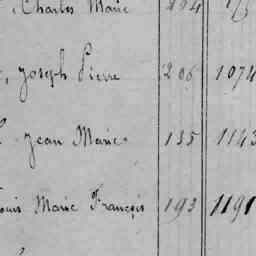 , Charles Marie
, Joseph Pierre 206 1074
Jean Marie 135 1143
Louis Marie François 193 1191